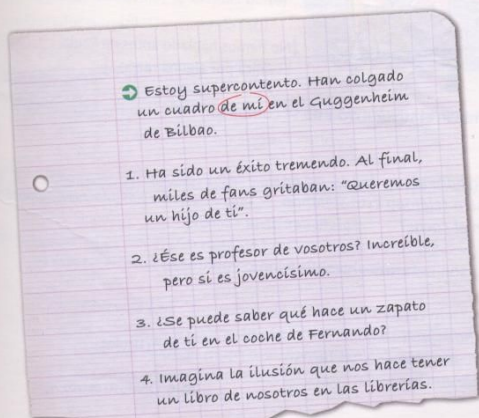 Estoy supercontento. Han colgado
un cuadro de mí en el Guggenheim
de Bilbao.
1. Ha sido un éxito tremendo. Al final,
miles de fans gritaban: "Queremos
un hijo de ti".
2. ¿Ése es profesor de vosotros? Increíble,
pero si es jovencísimo.
3. ¿Se puede saber qué hace un zapato
de ti en el coche de Fernando?
4. Imagina la ilusión que nos hace tener
un libro de nosotros en las librerías.